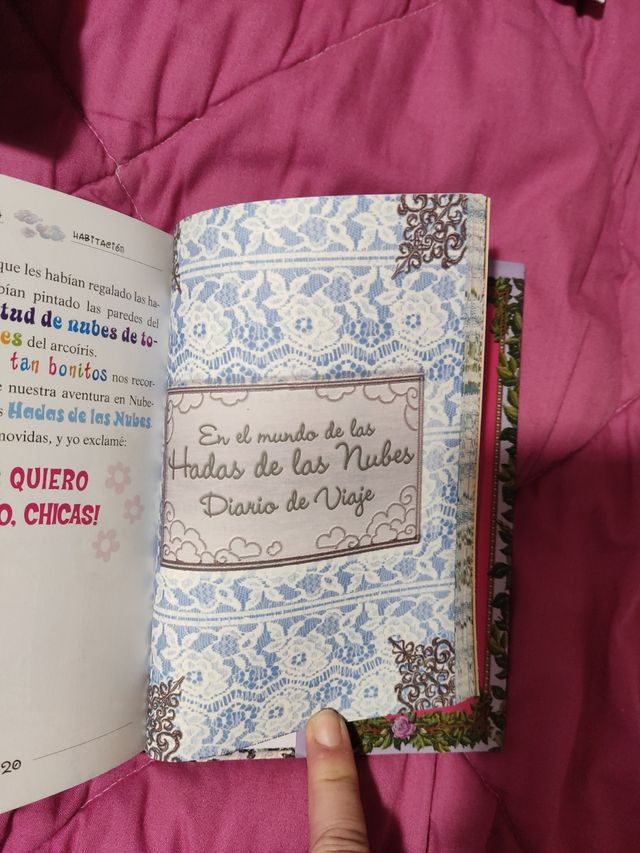 HABITACIÓN
que les habían regalado las ha-
pintado las paredes del
de nubes de to-
del arcoíris.
tan bonitos nos recor-
nuestra aventura en Nube-
Hadas de las Nubes.
y yo exclamé:
QUIERO
CHICAS!
20
En el mundo de las
Hadas de las Nubes
Diario de Viaje